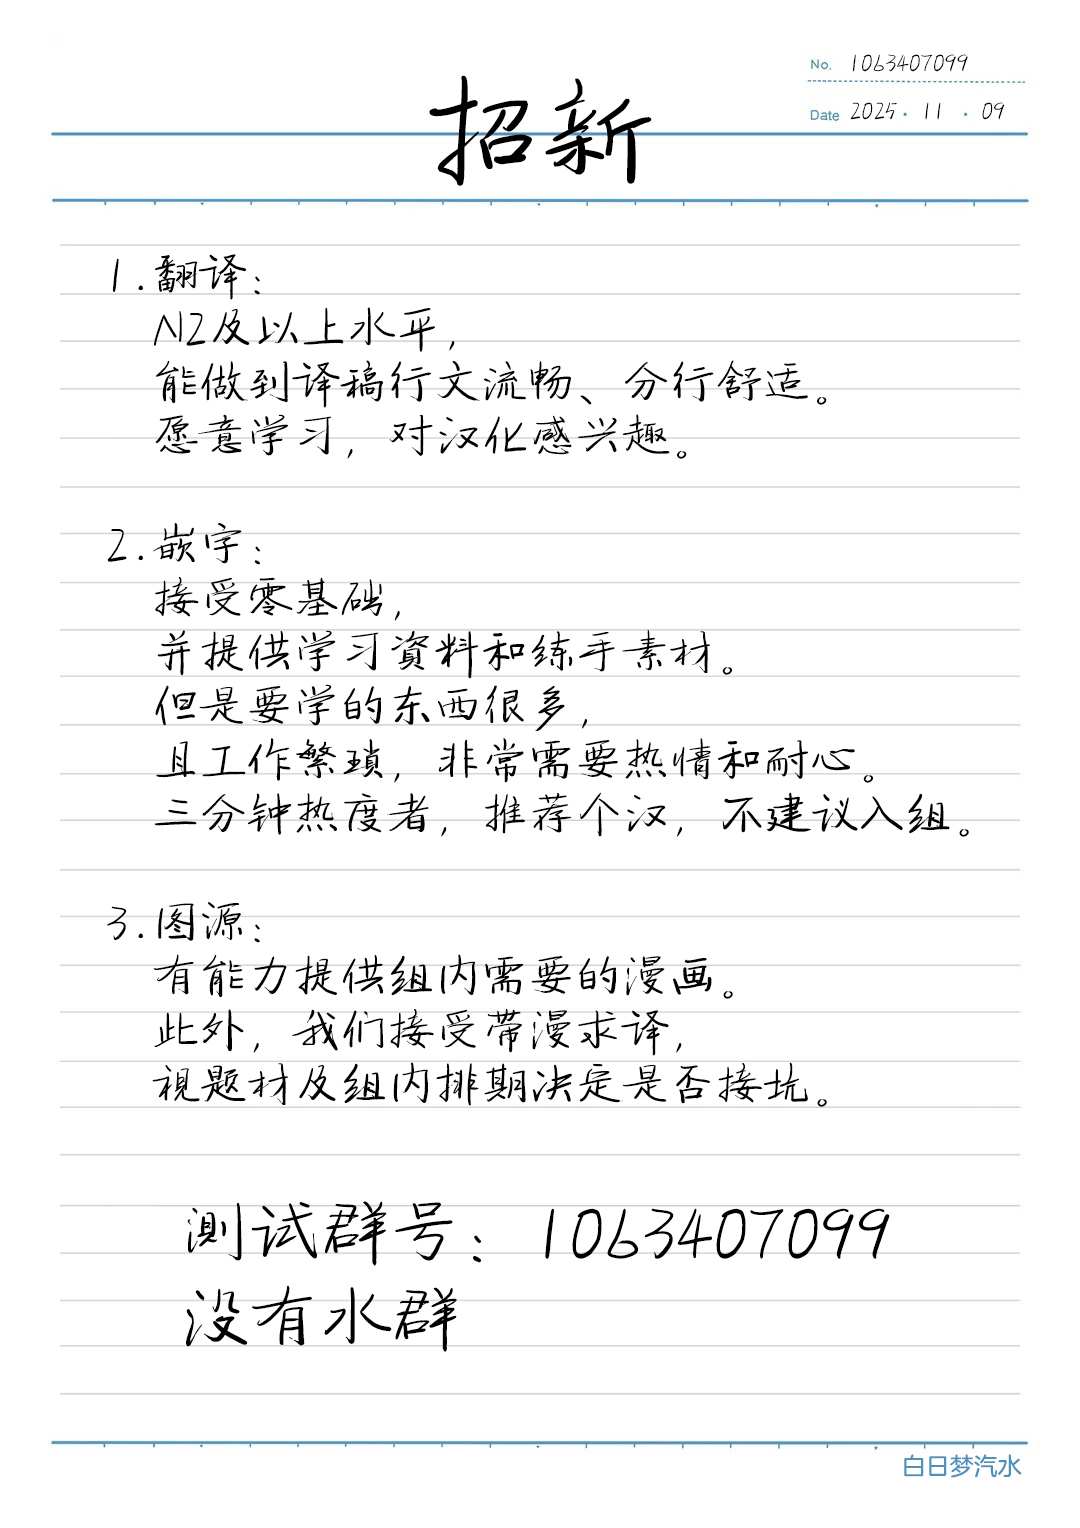 No. 1063407099
Date 2025 · 11 · 09
招新
1. 翻译：
N2及以上水平，
能做到译稿行文流畅、分行舒适。
愿意学习，对汉化感兴趣。
2. 嵌字：
接受零基础，
并提供学习資料和练手素材。
但是要学的东西很多，
且工作繁琐，非常需要热情和耐心。
三分钟热度者，推荐个汉，不建议入组。
3. 图源：
有能力提供组内需要的漫画。
此外，我们接受带漫求译，
视题材及组内排期决定是否接坑。
测试群号：1063407099
没有水群
白日梦汽水